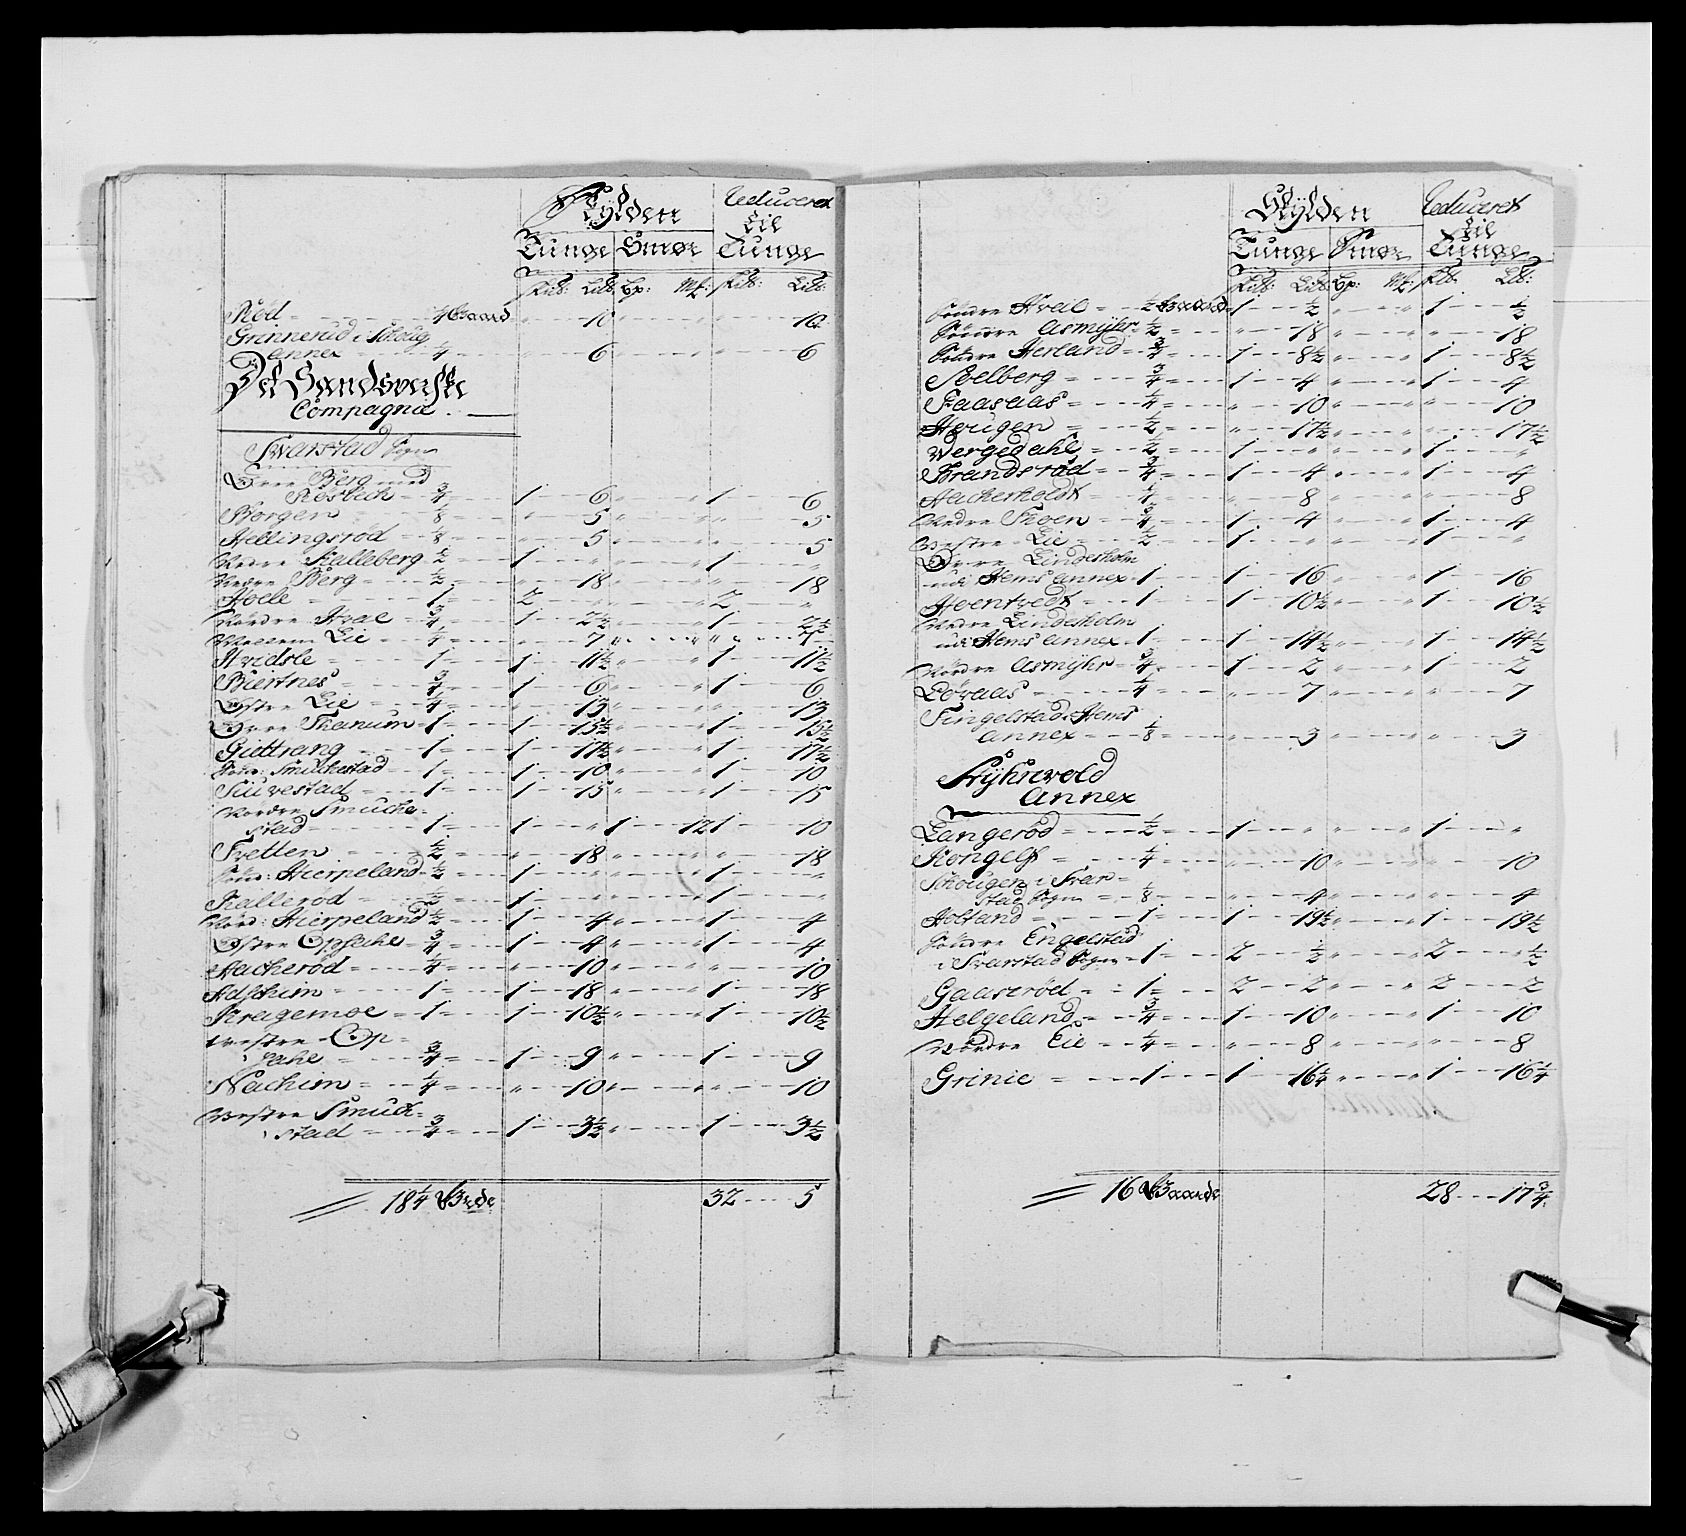 Skylden Reduceret
til
Tunge Smør Tunge
Skib: Lib: Bp: Mk: Skib: Lib:
Rød - - - ¼ Gaard " 10 " " " 10
Grinnerud i Skoug
annex - - ¼ " 6 " " " 6
Det Sandsverske
Compagnie
Svarstad Sogn
Øvre Berg med
Røsbech - ¾ 1 6 " " 1 6
Borgen - ⅛ " 5 " " " 5
Hellingsrød - ⅛ " 5 " " " 5
Nedre Kalleberg ½ 1 " " " 1 "
Nedre Berg - ½ " 18 " " " 18
Hoele - 1 2 " " " 2 "
Nordre Hvae - ¾ 1 2½ " " 1 2½
Mellem Eie - ¼ " 7 " " " 7
Hvidsle - 1 1 11½ " " 1 11½
Biertnes - ¾ 1 6 " " 1 6
Østre Eie - ¼ " 13 " " " 13
Øvre Thanum - 1 1 15½ " " 1 15½
Guttrang - 1 1 17½ " " 1 17½
Søn: Smuckestad - 1 1 10 " " 1 10
Siuvestad - 1 1 15 " " 1 15
Nordre Smucke-
stad - 1 1 " 1 12 1 10
Tvetten - ½ " 18 " " " 18
Sön: Hierpeland - ½ 1 " " " 1 "
Kallerød - ½ 1 " " " 1 "
Nörd: Hierpeland ½ 1 4 " " 1 4
Østre Opsahe - ¾ 1 4 " " 1 4
Hacherød - ¼ " 10 " " " 10
Hdschim - 1 1 18 " " 1 18
Kragemoe - 1 1 10½ " " 1 10½
Westre Op-
sahe - ¾ 1 9 " " 1 9
Nachim - ¼ " 10 " " " 10
Westre Smuck-
stad - ¾ 1 3½ " " 1 3½
18¼ Grde 32 5
Skylden Reduceret
til
Tunge Smør Tunge
Skib: Lib: Bp: Mk: Skib: Lib:
Söndre Hvae - ½ Gaard 1 ½ " " 1 ½
Söndre Asmyhr - ½ " 18 " " " 18
Söndre Herland - ¾ 1 8½ " " 1 8½
Soelberg - ¾ 1 4 " " 1 4
Faasaas - ¼ " 10 " " " 10
Hougen - ½ " 17½ " " " 17½
Wergedahl - ½ 1 " " " 1 "
Brandsrød - ¾ 1 4 " " 1 4
Hackerholdt - ¼ " 8 " " " 8
Nedre Thoen - ¾ 1 4 " " 1 4
Westre Eie - ½ 1 " " " 1 "
Øvre Lindesholm
udi Hems annex - 1 1 16 " " 1 16
Hoentvedt - 1 1 10½ " " 1 10½
Nedre Lindesholm
udi Hems annex - 1 1 14½ " " 1 14½
Nördre Asmyhr - ¾ 1 2 " " 1 2
Löraas - ¼ " 7 " " " 7
Fingelstad Hems
annex - ⅛ " 3 " " " 3
Styhrvold
annex
Langerød - ½ 1 " " " 1 "
Kongelf - ¼ " 10 " " " 10
Skougen i Svar-
stad Sogn - ⅛ " 4 " " " 4
Holtand - 1 1 19½ " " 1 19½
Söndre Engelstad
i Svarstad Sogn - 1 2 ½ " " 2 ½
Gaaserød - 1 2 2 " " 2 2
Helgeland - ¾ 1 10 " " 1 10
Nördre Eie - ¼ " 8 " " " 8
Grinie - 1 1 16¼ " " 1 16¼
16 Gaarde 28 17¾